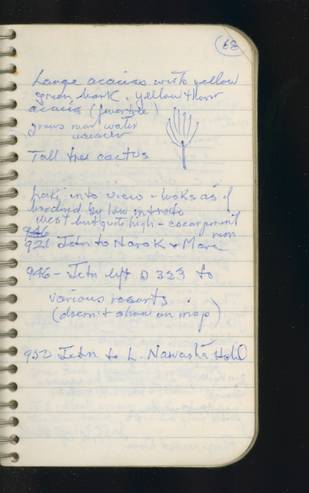 68
Large acacias with yellow
green bark. Yellow thorn
acacia (fevertree)
grows near water
Tall tree cactus
Lake into view - looks as if
by low
west but quite high - escarpment
946
921 Jctn to Narok & Mara
946 - Jctn left D 323 to
various resorts
(doesn't show on map)
952 Jctn to L. Naivasha Hotel